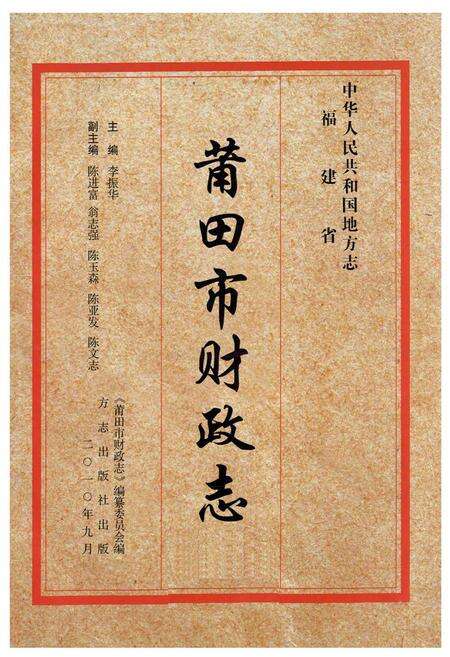 中华人民共和国地方志
福建省
莆田市财政志
主编 李振华
副主编 陈进富 翁志强 陈玉森 陈亚发 陈文志
《莆田市财政志》编纂委员会编
方志出版社出版
二〇一〇年九月